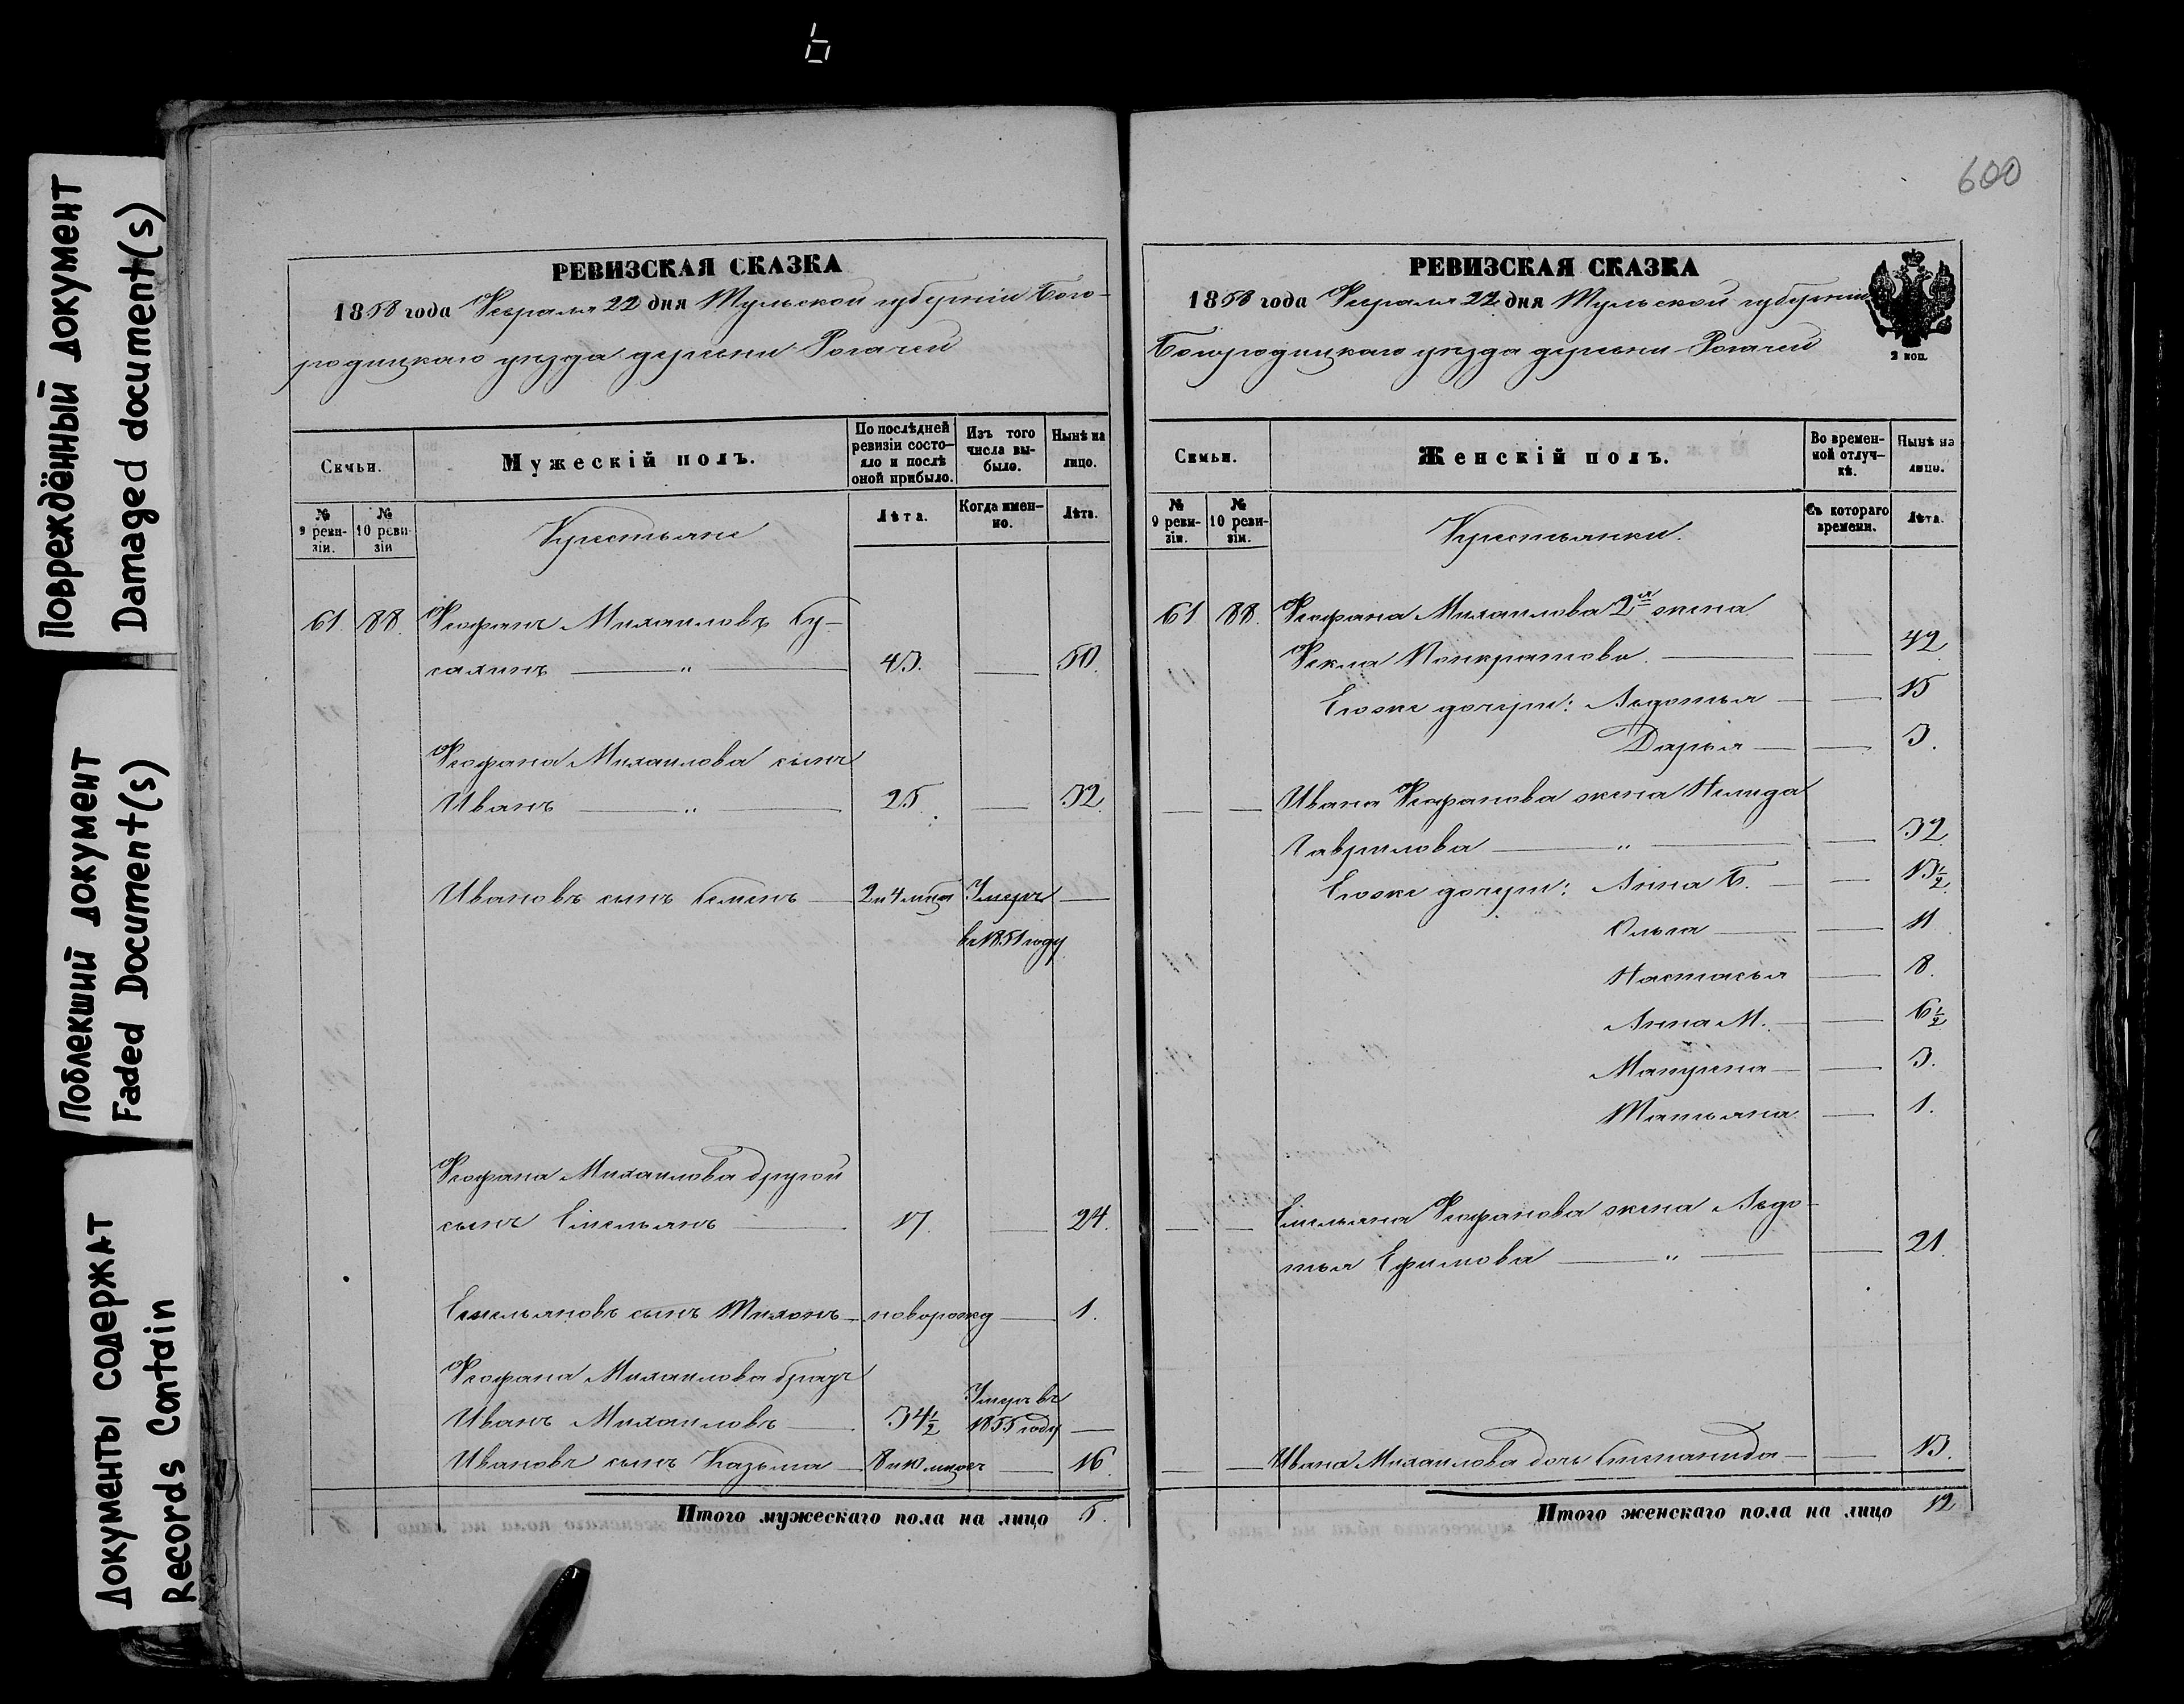 600
Повреждённый документ
Damaged document(s)
Поблекший документ
Faded Document(s)
Документы содержат
Records Contain
РЕВИЗСКАЯ СКАЗКА
1858 года Февраля 22 дня Тульской губернiи Бого-
родицкаго уѣзда деревни Рогачей
Семьи.
Мужескiй полъ.
По послѣдней ревизiи состо-яло и послѣ оной прибыло.
Изъ того числа вы-было.
Нынѣ на лицо.
№ 9 реви-зiи.
№ 10 реви-зiи
Крестьяне
Лѣта.
Когда имен-но.
Лѣта.
61. 88. Феофанъ Михаиловъ Су-
салинъ — " — 43. — 50.
Феофана Михаилова сынъ
Иванъ — " — 25 — 32.
Ивановъ сынъ Семенъ — 2 и 4 мѣся Умеръ —
въ 1851 году
Феофана Михаилова другой
сынъ Емельянъ — 17. — 24.
Емельяновъ сынъ Тихонъ — новорожд — 1.
Феофана Михаилова братъ
Иванъ Михаиловъ — 34½ Умеръ въ 1855 году —
Ивановъ сынъ Казьма — 8 и 10 мѣсец — 16.
Итого мужескаго пола на лицо 5.
РЕВИЗСКАЯ СКАЗКА
1858 года Февраля 22 дня Тульской губернiи
Богородицкаго уѣзда деревни Рогачей
2 коп.
Семьи.
Женскiй полъ.
Во времен-ной отлуч-кѣ.
Нынѣ на лицо.
№ 9 реви-зiи.
№ 10 реви-зiи.
Крестьянки.
Съ котораго времени.
Лѣта.
61 88. Феофана Михаилова 2я жена
Фекла Понкратова. — — 42
Ево же дочери: Авдотья — — 15
Дарья — — 3.
— — Ивана Феофанова жена Нелида
Гаврилова — " — — 32.
Ево же дочери: Анна Б. — — 13½
Ольга — — 11
Настасья — 8.
Анна М. — — 6½
Матрена — — 3.
Татьяна — 1.
— — Емельяна Феофанова жена Авдо-
тья Ефимова — " — — 21.
— — Ивана Михаилова дочь Степанида — — 13.
Итого женскаго пола на лицо 12